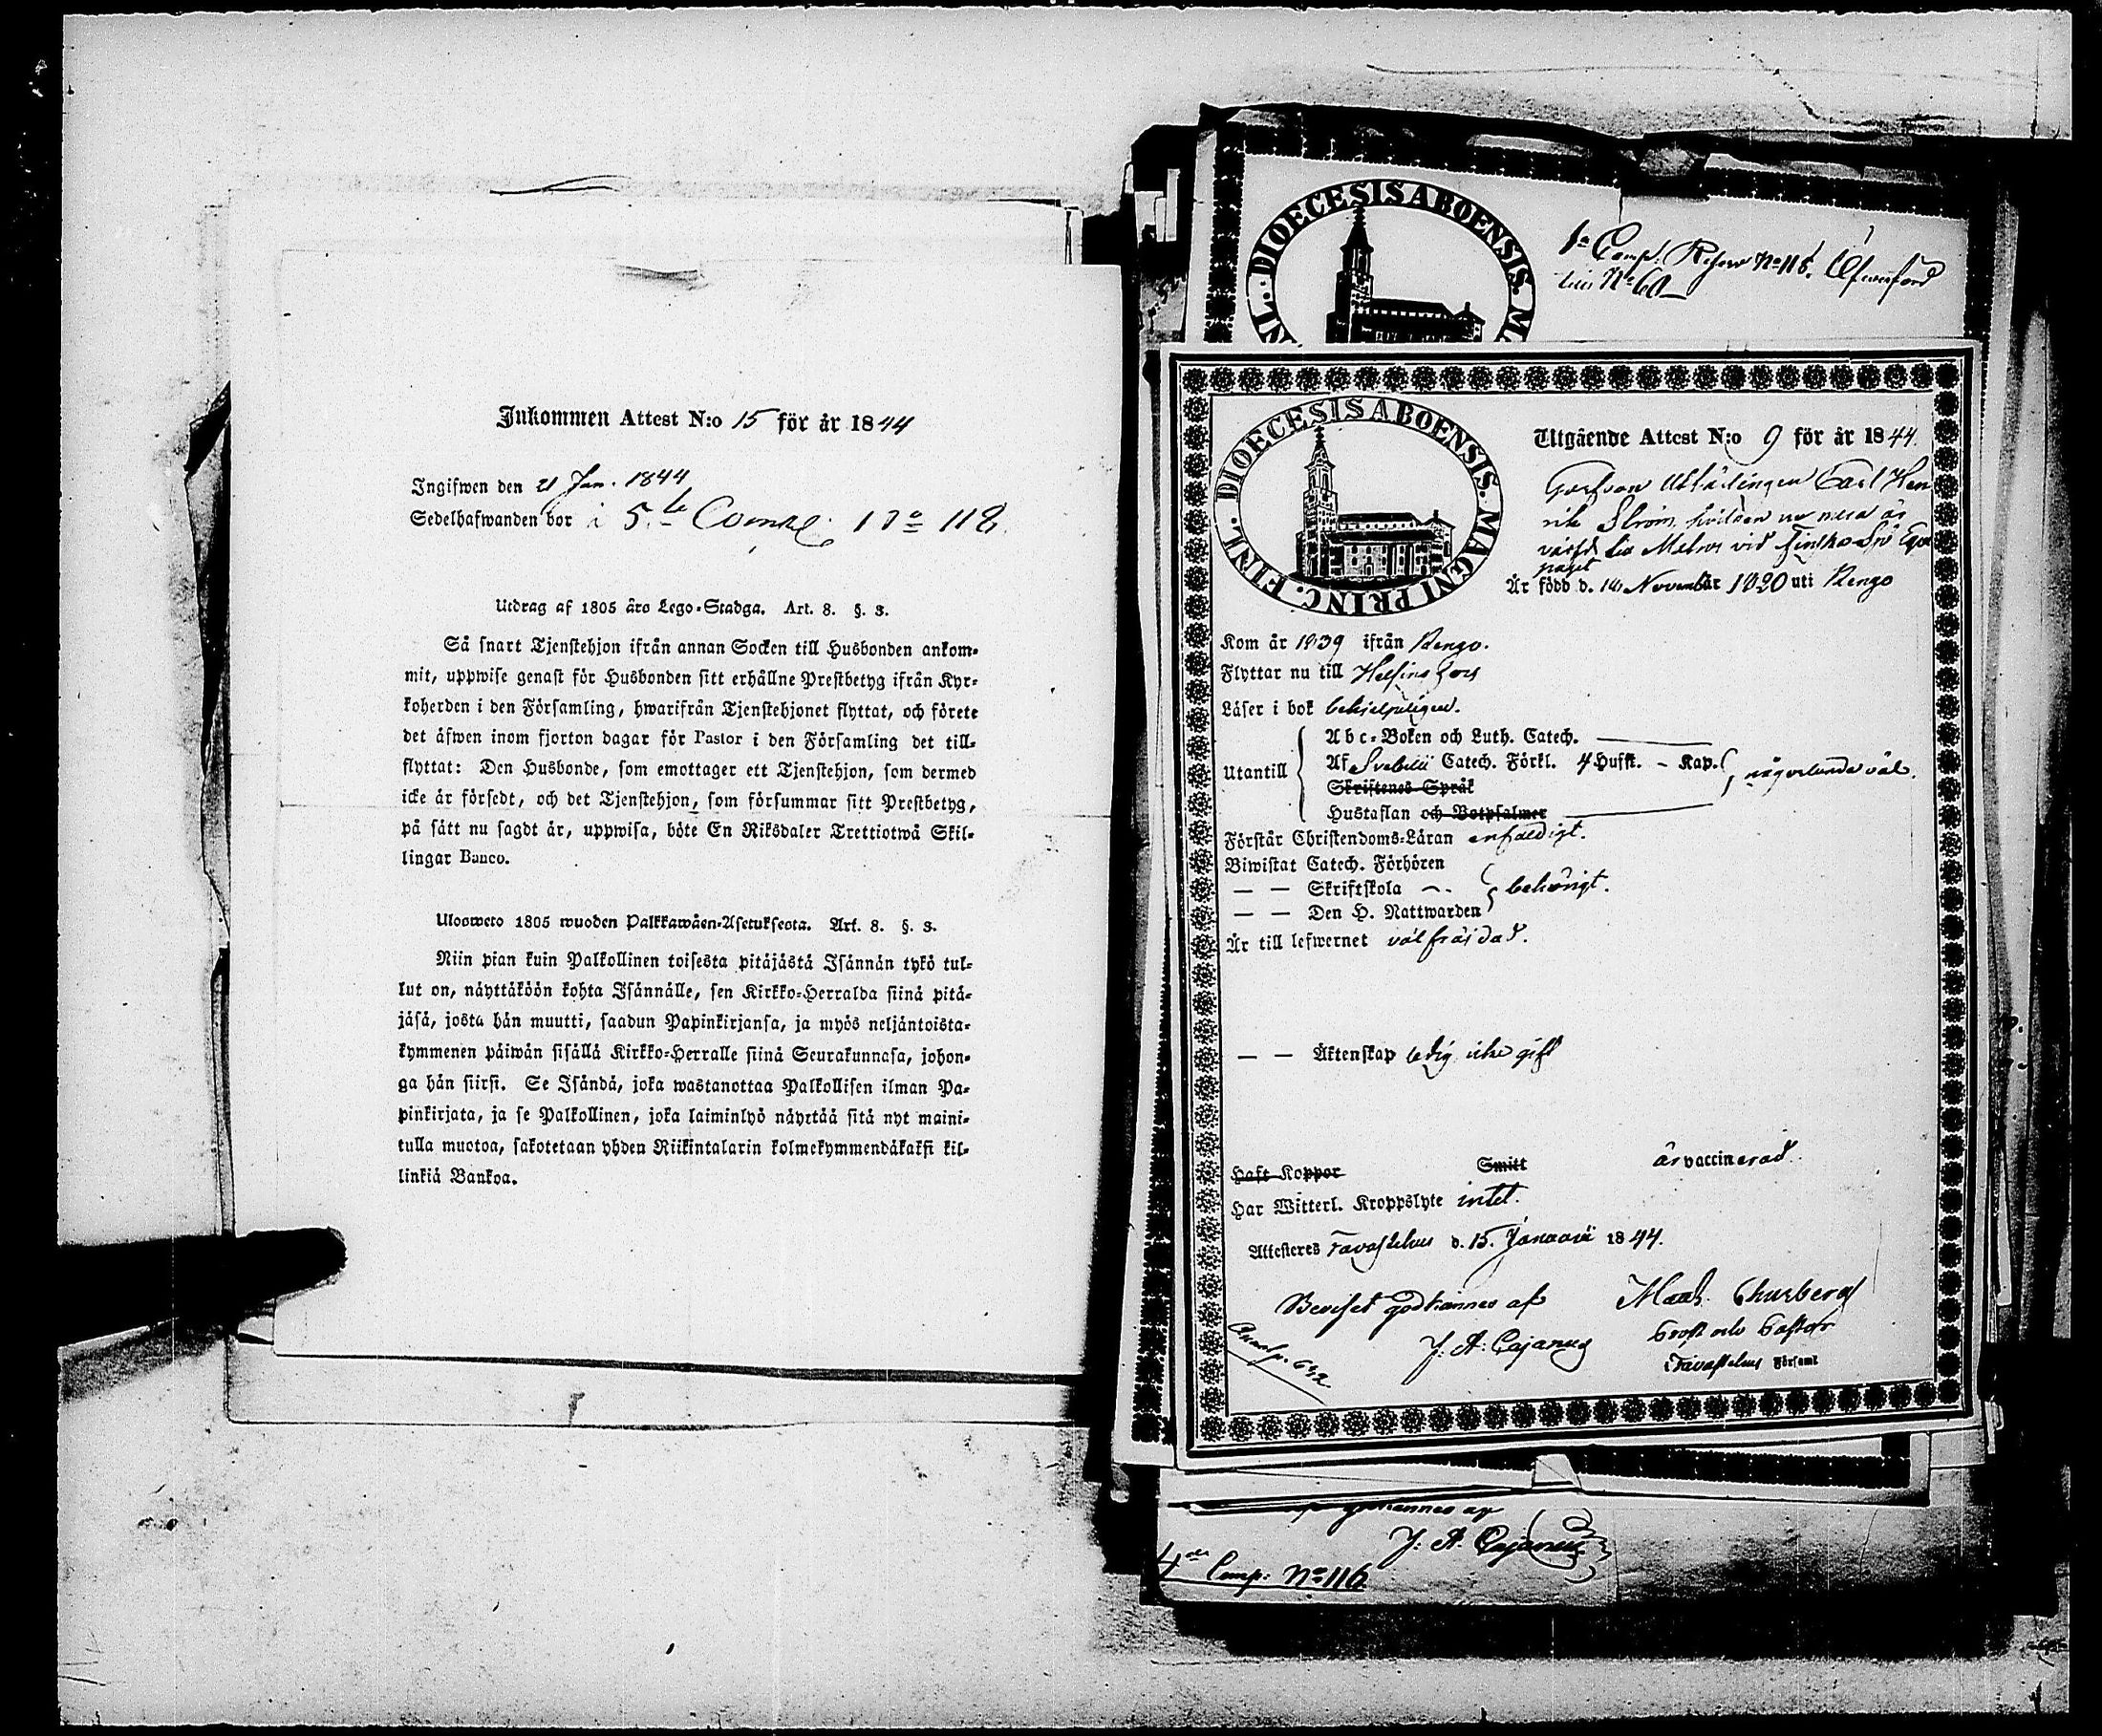 Inkommen Attest N:o 15 för år 1844
Ingifwen den 21 Jan. 1844
Sedelhafwanden bor i 5te Comp. No 118.
Utdrag af 1805 års Lego-Stadga. Art. 8. §. 3.
Så snart Tjenstehjon ifrån annan Socken till Husbonden ankom-
mit, uppwise genast för Husbonden sitt erhållne Prestbetyg ifrån Kyr-
koherden i den Församling, hwarifrån Tjenstehjonet flyttat, och förete
det äfwen inom fjorton dagar för Pastor i den Församling det till-
flyttat: Den Husbonde, som emottager ett Tjenstehjon, som dermed
icke är försedt, och det Tjenstehjon, som försummar sitt Prestbetyg,
på sätt nu sagdt är, uppwisa, böte En Riksdaler Trettiotwå Skil-
lingar Banco.
Ulosweto 1805 wuoden Palkkawäen-Asetuksesta. Art. 8. §. 3.
Niin pian kuin Palkollinen toisesta pitäjästä Isännän tykö tul-
lut on, näyttäköön kohta Isännälle, sen Kirkko-Herralda siinä pitä-
jäsä, josta hän muutti, saadun Papinkirjansa, ja myös neljäntoista-
kymmenen päiwän sisällä Kirkko-Herralle siinä Seurakunnasa, johon-
ga hän siirsi. Se Isändä, joka wastanottaa Palkollisen ilman Pa-
pinkirjata, ja se Palkollinen, joka laiminlyö näyttää sitä nyt maini-
tulla muotoa, sakotetaan yhden Riikintalarin kolmekymmendäkaksi kil-
linkiä Bankoa.
DIOECESIS ABOENSIS. MA
NL.
1a Comp. Reserv No 118.
No 60
DIOECESIS ABOENSIS. MAGNI PRINC. FINL.
Utgående Attest N:o 9 för år 1844.
Garfvare Utlärlingen Carl Hen
rik Ström, hvilken nu mera är
värfd till Matros vid Finska Sjö Equi
paget
Är född d. 16 November 1820 uti Rengo
Kom år 1839 ifrån Rengo.
Flyttar nu till Helsingfors
Läser i bok behjelpligen.
Abc-Boken och Luth. Catech.
Utantill Af Svebilii Catech. Förkl. 4 Hufst. - Kap. någorlunda väl.
Skriftenes Språk
Hustaflan och Botpsalmer
Förstår Christendoms-Läran enfaldigt.
Biwistat Catech. Förhören
— — Skriftskola behörigt.
— — Den H. Nattwarden
Är till lefwernet välfräjdad.
— — Äktenskap ledig icke gift
Haft Koppor Smitt är vaccinerad.
Har Witterl. Kroppslyte intet.
Attesteres Tavastehus d. 15. Januarii 1844.
Beviset godkännes af
J. A. Cajanus
Math. Churberg
Prost och Pastor
i Tavastehus Församl
J. A. Cajanus
4de Comp: No 116